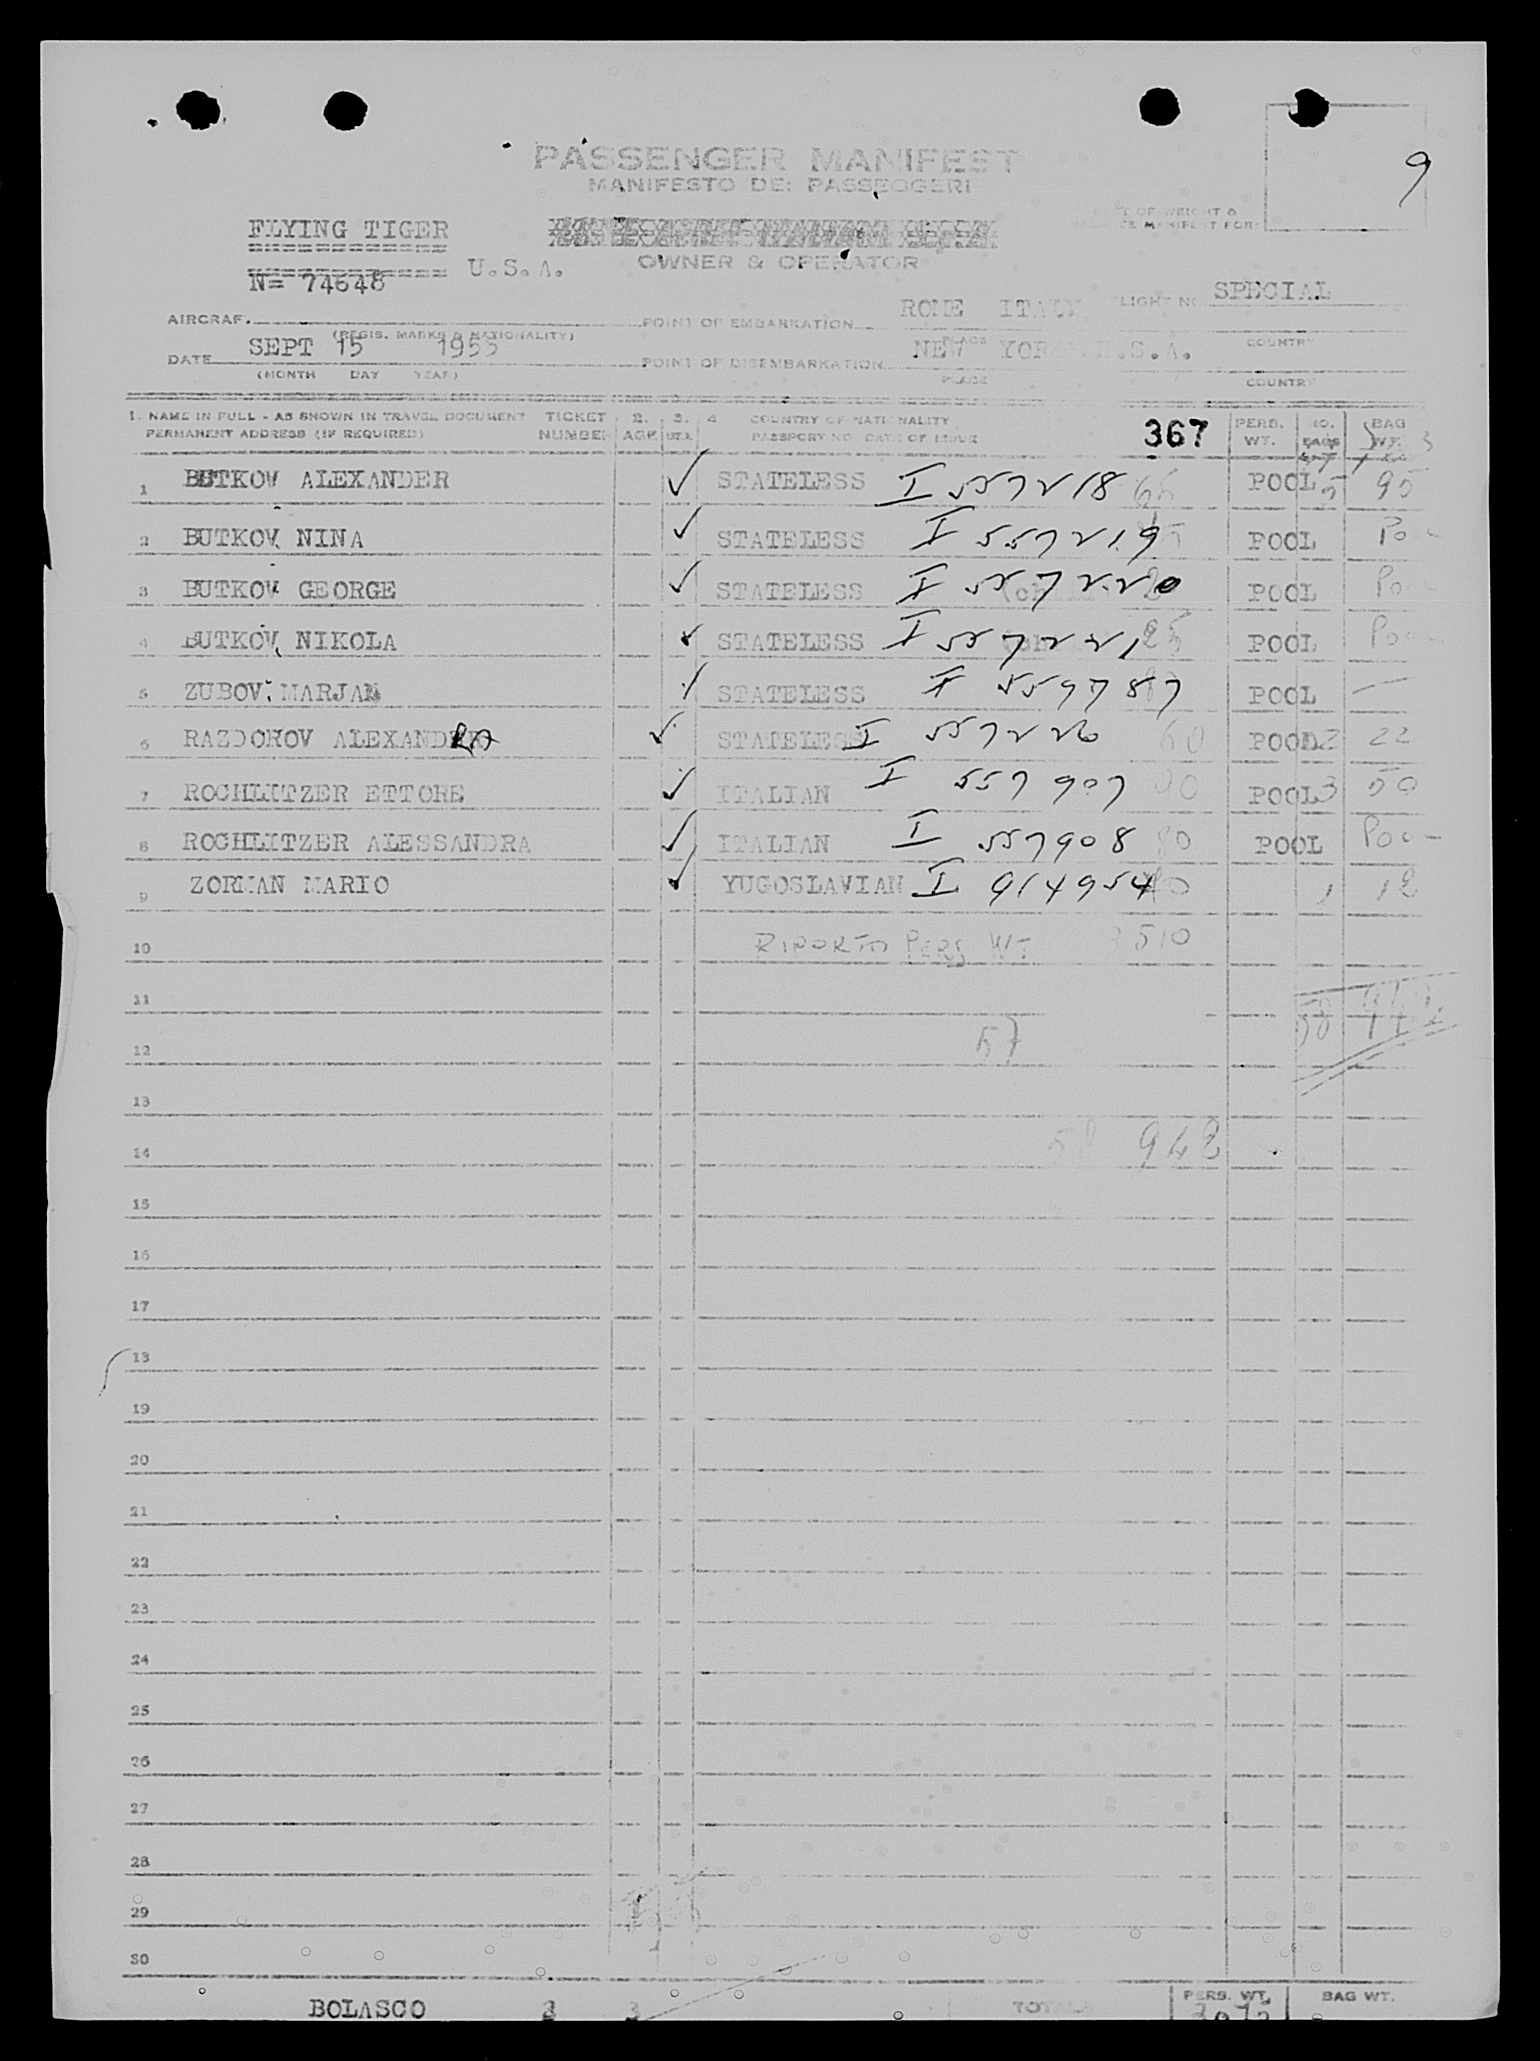 9
PASSENGER MANIFEST
MANIFESTO DE: PASSEGGERI
FLYING TIGER
OF WEIGHT &
MANIFEST FOR:
N= 74648 U.S.A. OWNER & OPERATOR
AIRCRAF. POINT OF EMBARKATION ROME ITALY FLIGHT NO SPECIAL
(REGIS. MARKS & NATIONALITY) PLACE COUNTRY
DATE SEPT 15 1955 POINT OF DISEMBARKATION NEW YORK U.S.A.
(MONTH DAY YEAR) PLACE COUNTRY
1. NAME IN FULL - AS SHOWN IN TRAVEL DOCUMENT TICKET 2. 3. 4 COUNTRY OF NATIONALITY 367 PERS. NO. BAG
PERMANENT ADDRESS (IF REQUIRED) NUMBER AGE SEX PASSPORT NO. DATE OF ISSUE WT. BAGS WT.
1 BUTKOV ALEXANDER ✓ STATELESS I 557218 POOL 5 95
2 BUTKOV NINA ✓ STATELESS I 557219 POOL Poo
3 BUTKOV GEORGE ✓ STATELESS I 557220 POOL Poo
4 BUTKOV NIKOLA ✓ STATELESS I 557221 25 POOL Poo
5 ZUBOV MARJAN ✓ STATELESS I 559787 POOL —
6 RAZDOROV ALEXANDRA ✓ STATELESS I 557226 60 POOL 2 22
7 ROCHLITZER ETTORE ✓ ITALIAN I 557907 90 POOL 3 50
8 ROCHLITZER ALESSANDRA ✓ ITALIAN I 557908 80 POOL Poo
9 ZORMAN MARIO ✓ YUGOSLAVIAN I 914954 1 12
10 RIPORTO PERS WT 3510
11
58
12 57
13
14 58 942
15
16
17
18
19
20
21
22
23
24
25
26
27
28
29
30
BOLASCO 2 3 TOTALS PERS. WT. BAG WT.